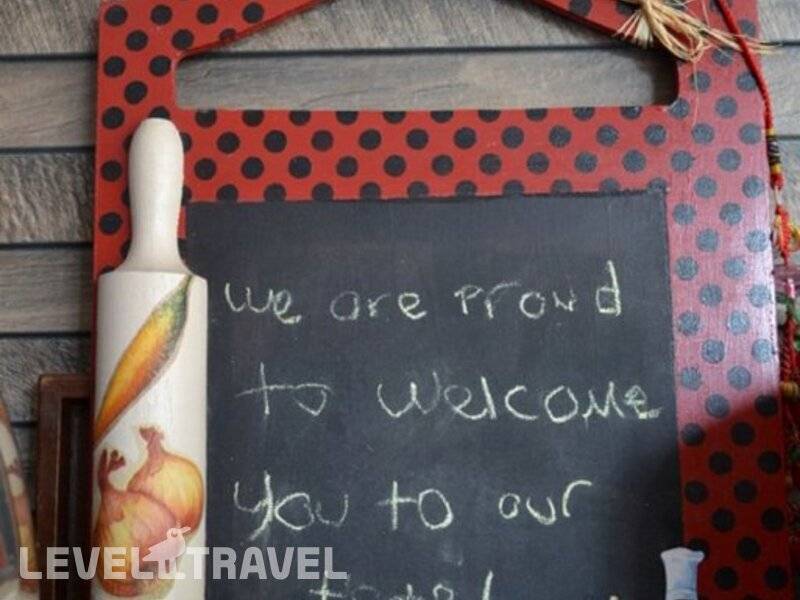 we are proud
to welcome
you to our
LEVEL.TRAVEL